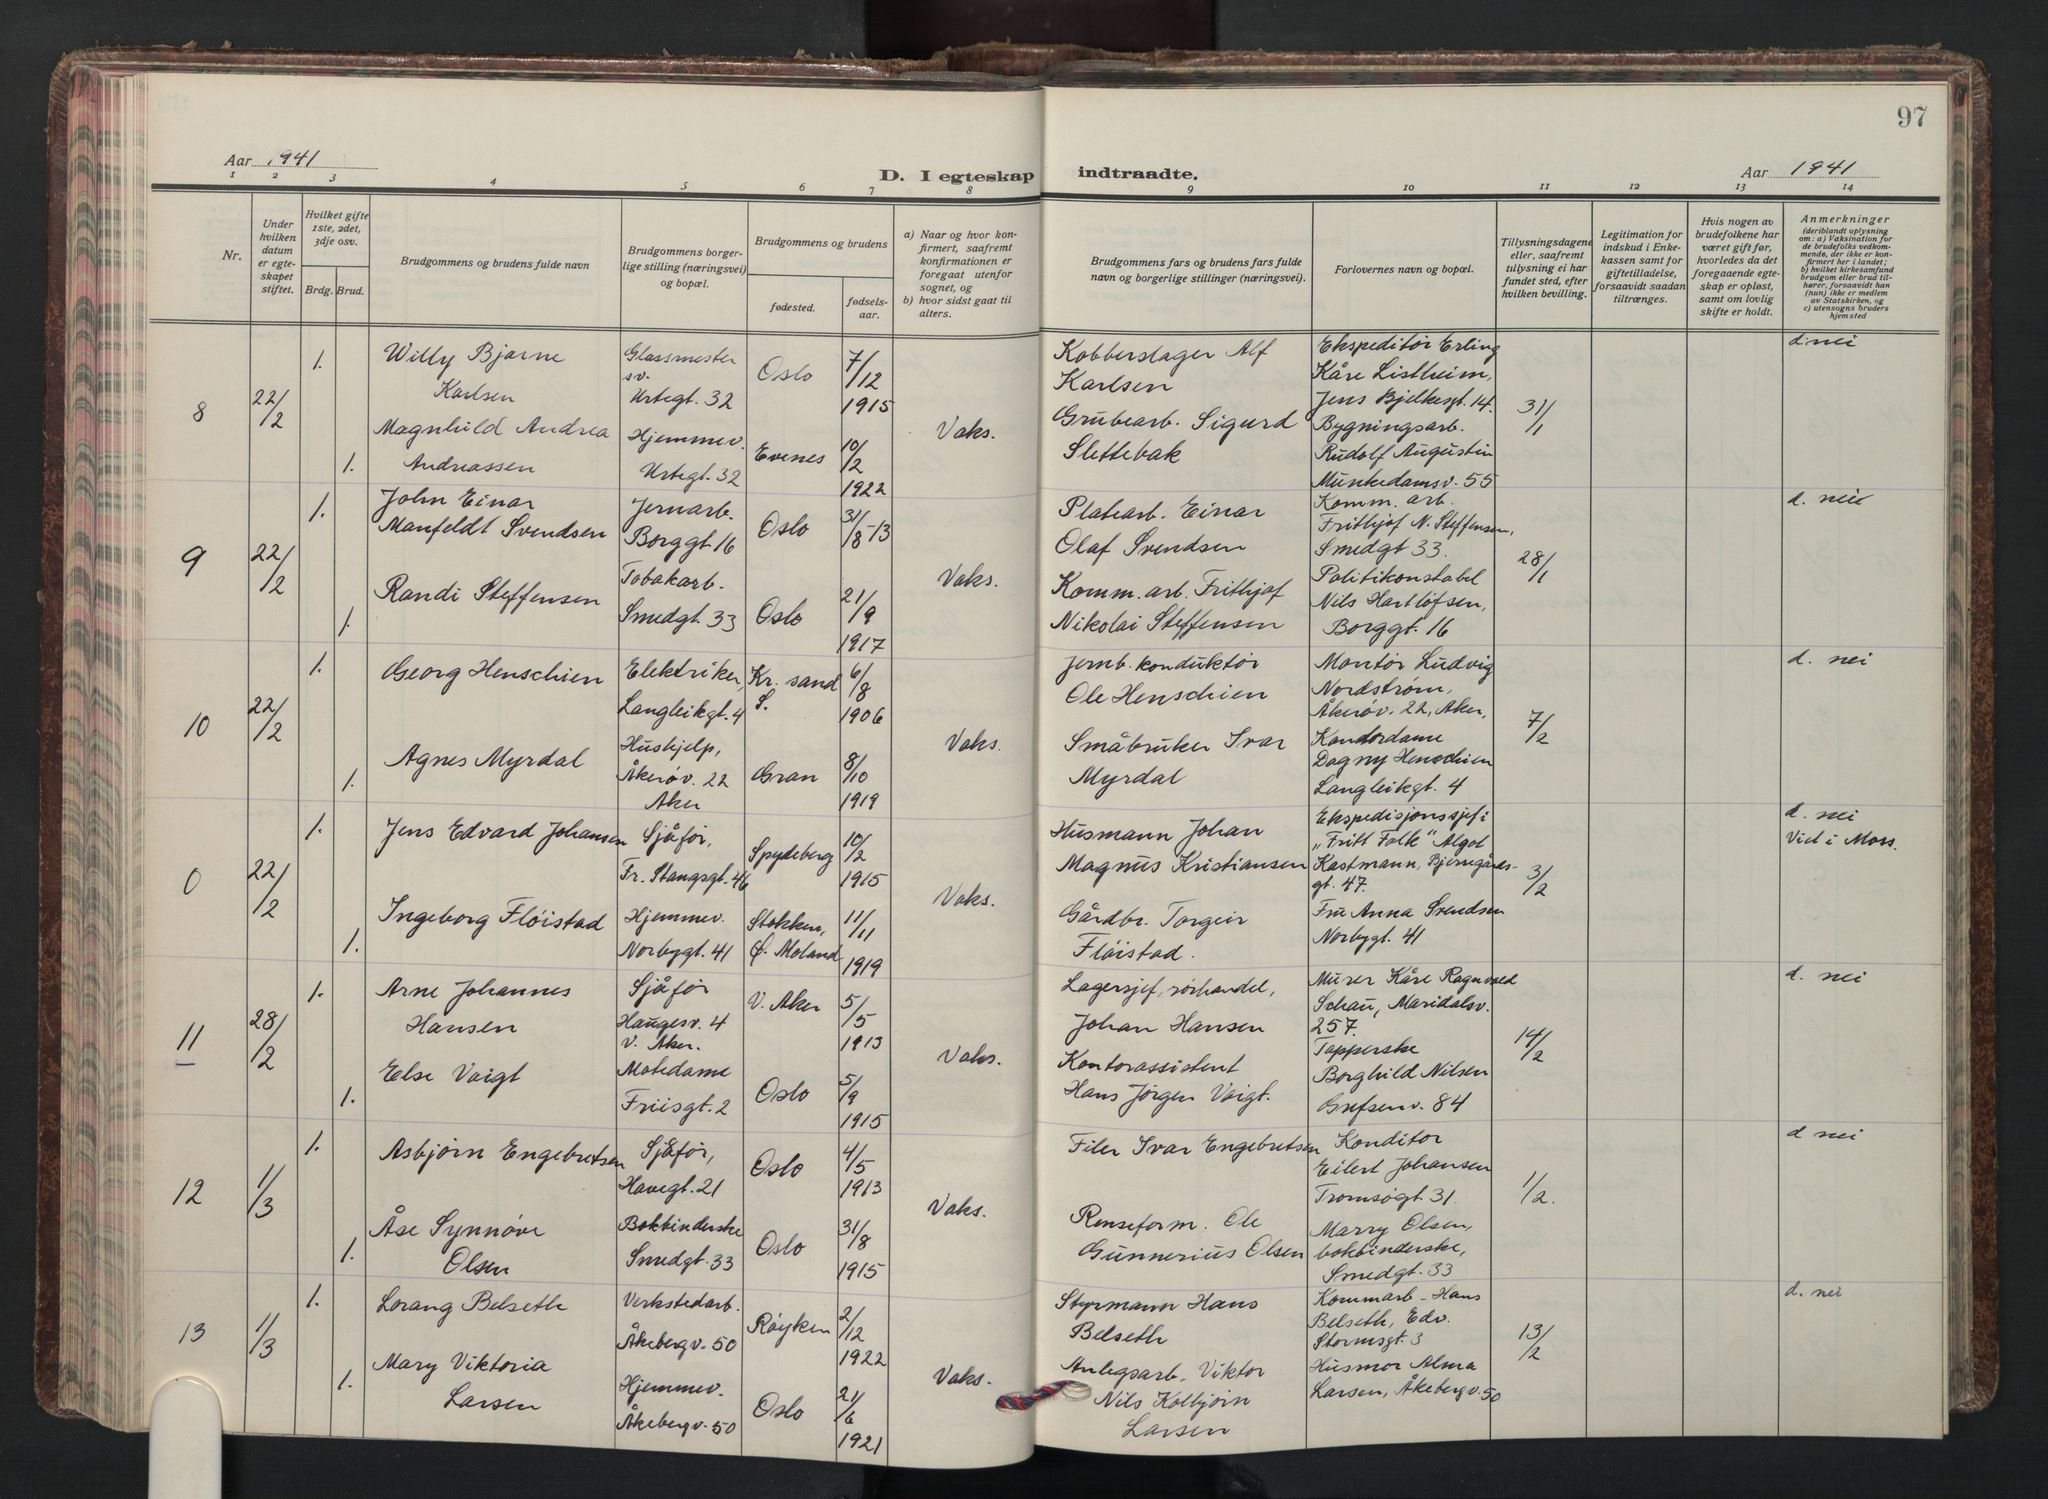 97
Aar 1941
D. I egteskap indtraadte.
Aar 1941
1 2 3 4 5 6 7 8 9 10 11 12 13 14
Nr.
Under
hvilken
datum
er egte-
skapet
stiftet.
Hvilket gifte
1ste, 2det,
3dje osv.
Brdg. Brud.
Brudgommens og brudens fulde navn
Brudgommens borger-
lige stilling (næringsvei)
og bopæl.
Brudgommens og brudens
fødested.
fødsels-
aar.
a) Naar og hvor kon-
firmert, saafremt
konfirmationen er
foregaat utenfor
sognet, og
b) hvor sidst gaat til
alters.
Brudgommens fars og brudens fars fulde
navn og borgerlige stillinger (næringsvei).
Forlovernes navn og bopæl.
Tillysningsdagene
eller, saafremt
tillysning ei har
fundet sted, efter
hvilken bevilling.
Legitimation for
indskud i Enke-
kassen samt for
giftetilladelse,
forsaavidt saadan
tiltrænges.
Hvis nogen av
brudefolkene har
været gift før,
hvorledes da det
foregaaende egte-
skap er opløst,
samt om lovlig
skifte er holdt.
Anmerkninger
(deriblandt oplysning
om: a) Vaksination for
de brudefolks vedkom-
mende, der ikke er kon-
firmert her i landet;
b) hvilket kirkesamfund
brudgom eller brud til-
hører, forsaavidt han
(hun) ikke er medlem
av Statskirken, og
c) utensogns bruders
hjemsted
8
22/2
1.
Willy Bjarne
Karlsen
Glassmester
sv.
Urtegt. 32
Oslo
7/12
1915
1.
Magnhild Andrea
Andreassen
Hjemmev.
Urtegt. 32
Evenes
10/2
1922
Vaks.
Kobberslager Alf
Karlsen
Grubearb. Sigurd
Slettebak
Ekspeditör Erling
Kåre Listheim,
Jens Bjelkesgt. 14.
Bygningsarb.
Rudolf Augustin
Munkedamsv. 55
31/1
d. nei
9
22/2
1.
John Einar
Manfeldt Svendsen
Jernarb.
Borggt. 16
Oslo
31/8-13
1.
Randi Steffensen
Tobakarb.
Smedgt. 33
Oslo
21/9
1917
Vaks.
Platearb. Einar
Olaf Svendsen
Komm. arb. Frithjof
Nikolai Steffensen
Komm. arb.
Frithjof N. Steffensen,
Smedgt 33.
Politikonstabel
Nils Hartlöfsen,
Borggt. 16
28/1
d. nei
10
22/2
1.
Georg Henschien
Elektriker,
Langleikgt. 4
Kr. sand
S.
6/8
1906
1.
Agnes Myrdal
Hushjelp,
Åkerøv. 22
Aker
Gran
8/10
1919
Vaks.
Jernb. konduktör
Ole Henschien
Småbruker Ivar
Myrdal
Montör Ludvig
Nordstrøm,
Åkerøv. 22, Aker,
Kontordame
Dagny Henschien
Langleikgt. 4
7/2
d. nei
0
22/2
1.
Jens Edvard Johansen
Sjåför,
Fr. Stangsgt. 46
Spydeberg
10/2
1915
1.
Ingeborg Flöistad
Hjemmev.
Norbygt. 41
Stokken,
Ø. Moland
11/11
1919
Vaks.
Husmann Johan
Magnus Kristiansen
Gårdbr. Torgeir
Flöistad.
Ekspedisjonssjef i
"Fritt Folk" Algot
Kastmann, Bjerregårds-
gt. 47.
Fru Anna Svendsen
Norbygt. 41
3/2
d. nei
Viet i Moss.
11
28/2
1.
Arne Johannes
Hansen
Sjåför
Haugesv. 4
V. Aker.
V. Aker
5/5
1913
1.
Else Voigt
Motedame
Friisgt. 2
Oslo
5/9
1915
Vaks.
Lagersjef, rörhandel,
Johan Hansen
Kontorassistent
Hans Jörgen Voigt.
Murer Kåre Ragnvald
Schau, Maridalsv.
257.
Tapperske
Borghild Nilsen
Grefsenv. 84
14/2
d. nei
12
1/3
1.
Asbjörn Engebretsen
Sjåför,
Havegt. 21
Oslo
4/5
1913
1.
Åse Synnöve
Olsen
Bokbinderske
Smedgt. 33
Oslo
31/8
1915
Vaks.
Filer Ivar Engebretsen
Renseform. Ole
Gunnerius Olsen
Konditor
Eilert Johansen
Tromsögt. 31.
Marry Olsen,
bokbinderske,
Smedgt. 33
1/2.
d nei
13
1/3
1.
Lorang Belseth
Verkstedarb.
Åkebergv. 50
Röyken
2/12
1922
1.
Mary Viktoria
Larsen
Hjemmev.
Åkebergv. 50
Oslo
21/6
1921
Vaks.
Styrmann Hans
Belseth
Anlegsarb. Viktor
Nils Kolbjörn
Larsen
Kommarb - Hans
Belseth, Edv.
Stormsgt. 3
Husmor Alma
Larsen, Åkebergv. 50
13/2
d. nei